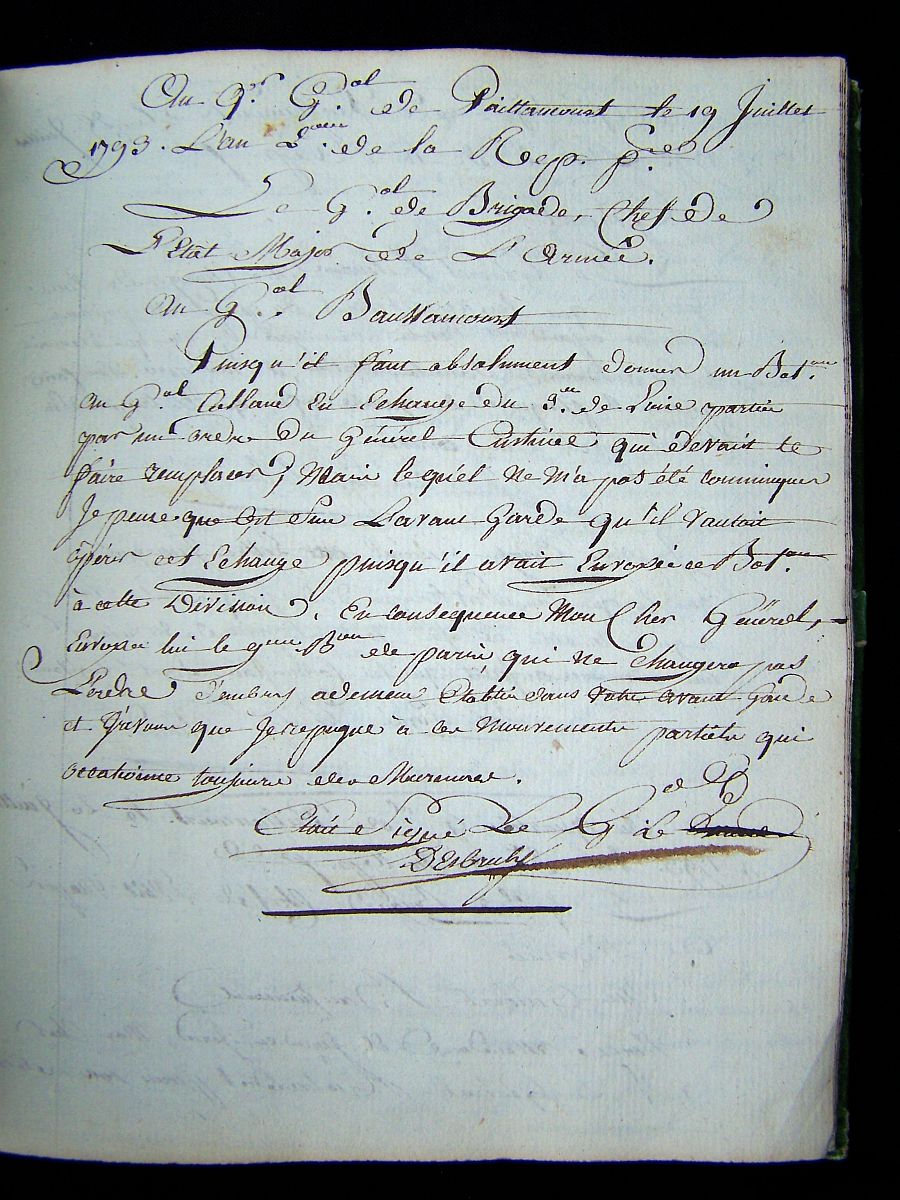 Au Q.er G.al de Paillancourt le 19 Juillet
1793. L'an 2.eme de la Rep. f.se
Le G.al de Brigade, Chef de
l'Etat Major de L'Armée.
Au G.al Baullancourt
Puisqu'il faut absolument donner un Bat.on
au G.al en Echange du 3.e de Loire partie
par un ordre du Général Custine qui devait le
faire remplacer, Mais lequel ne m'a pas été communiquer
Je pense que c'est d'une L'avant Garde qu'il vaulait
opérer cet Echange puisqu'il avait Envoyé ce Bat.on
à cette Division. En consequence Mon Cher Général,
Envoyer lui le 9me B.on de paris qui ne changera pas
L'ordre d' Etablie dans Votre avant Garde
et J'avoue que Je repugne à ces mouvements partiels qui
occationne toujours des Murmures.
Etait Signé Le G.al de B
Desbrulys